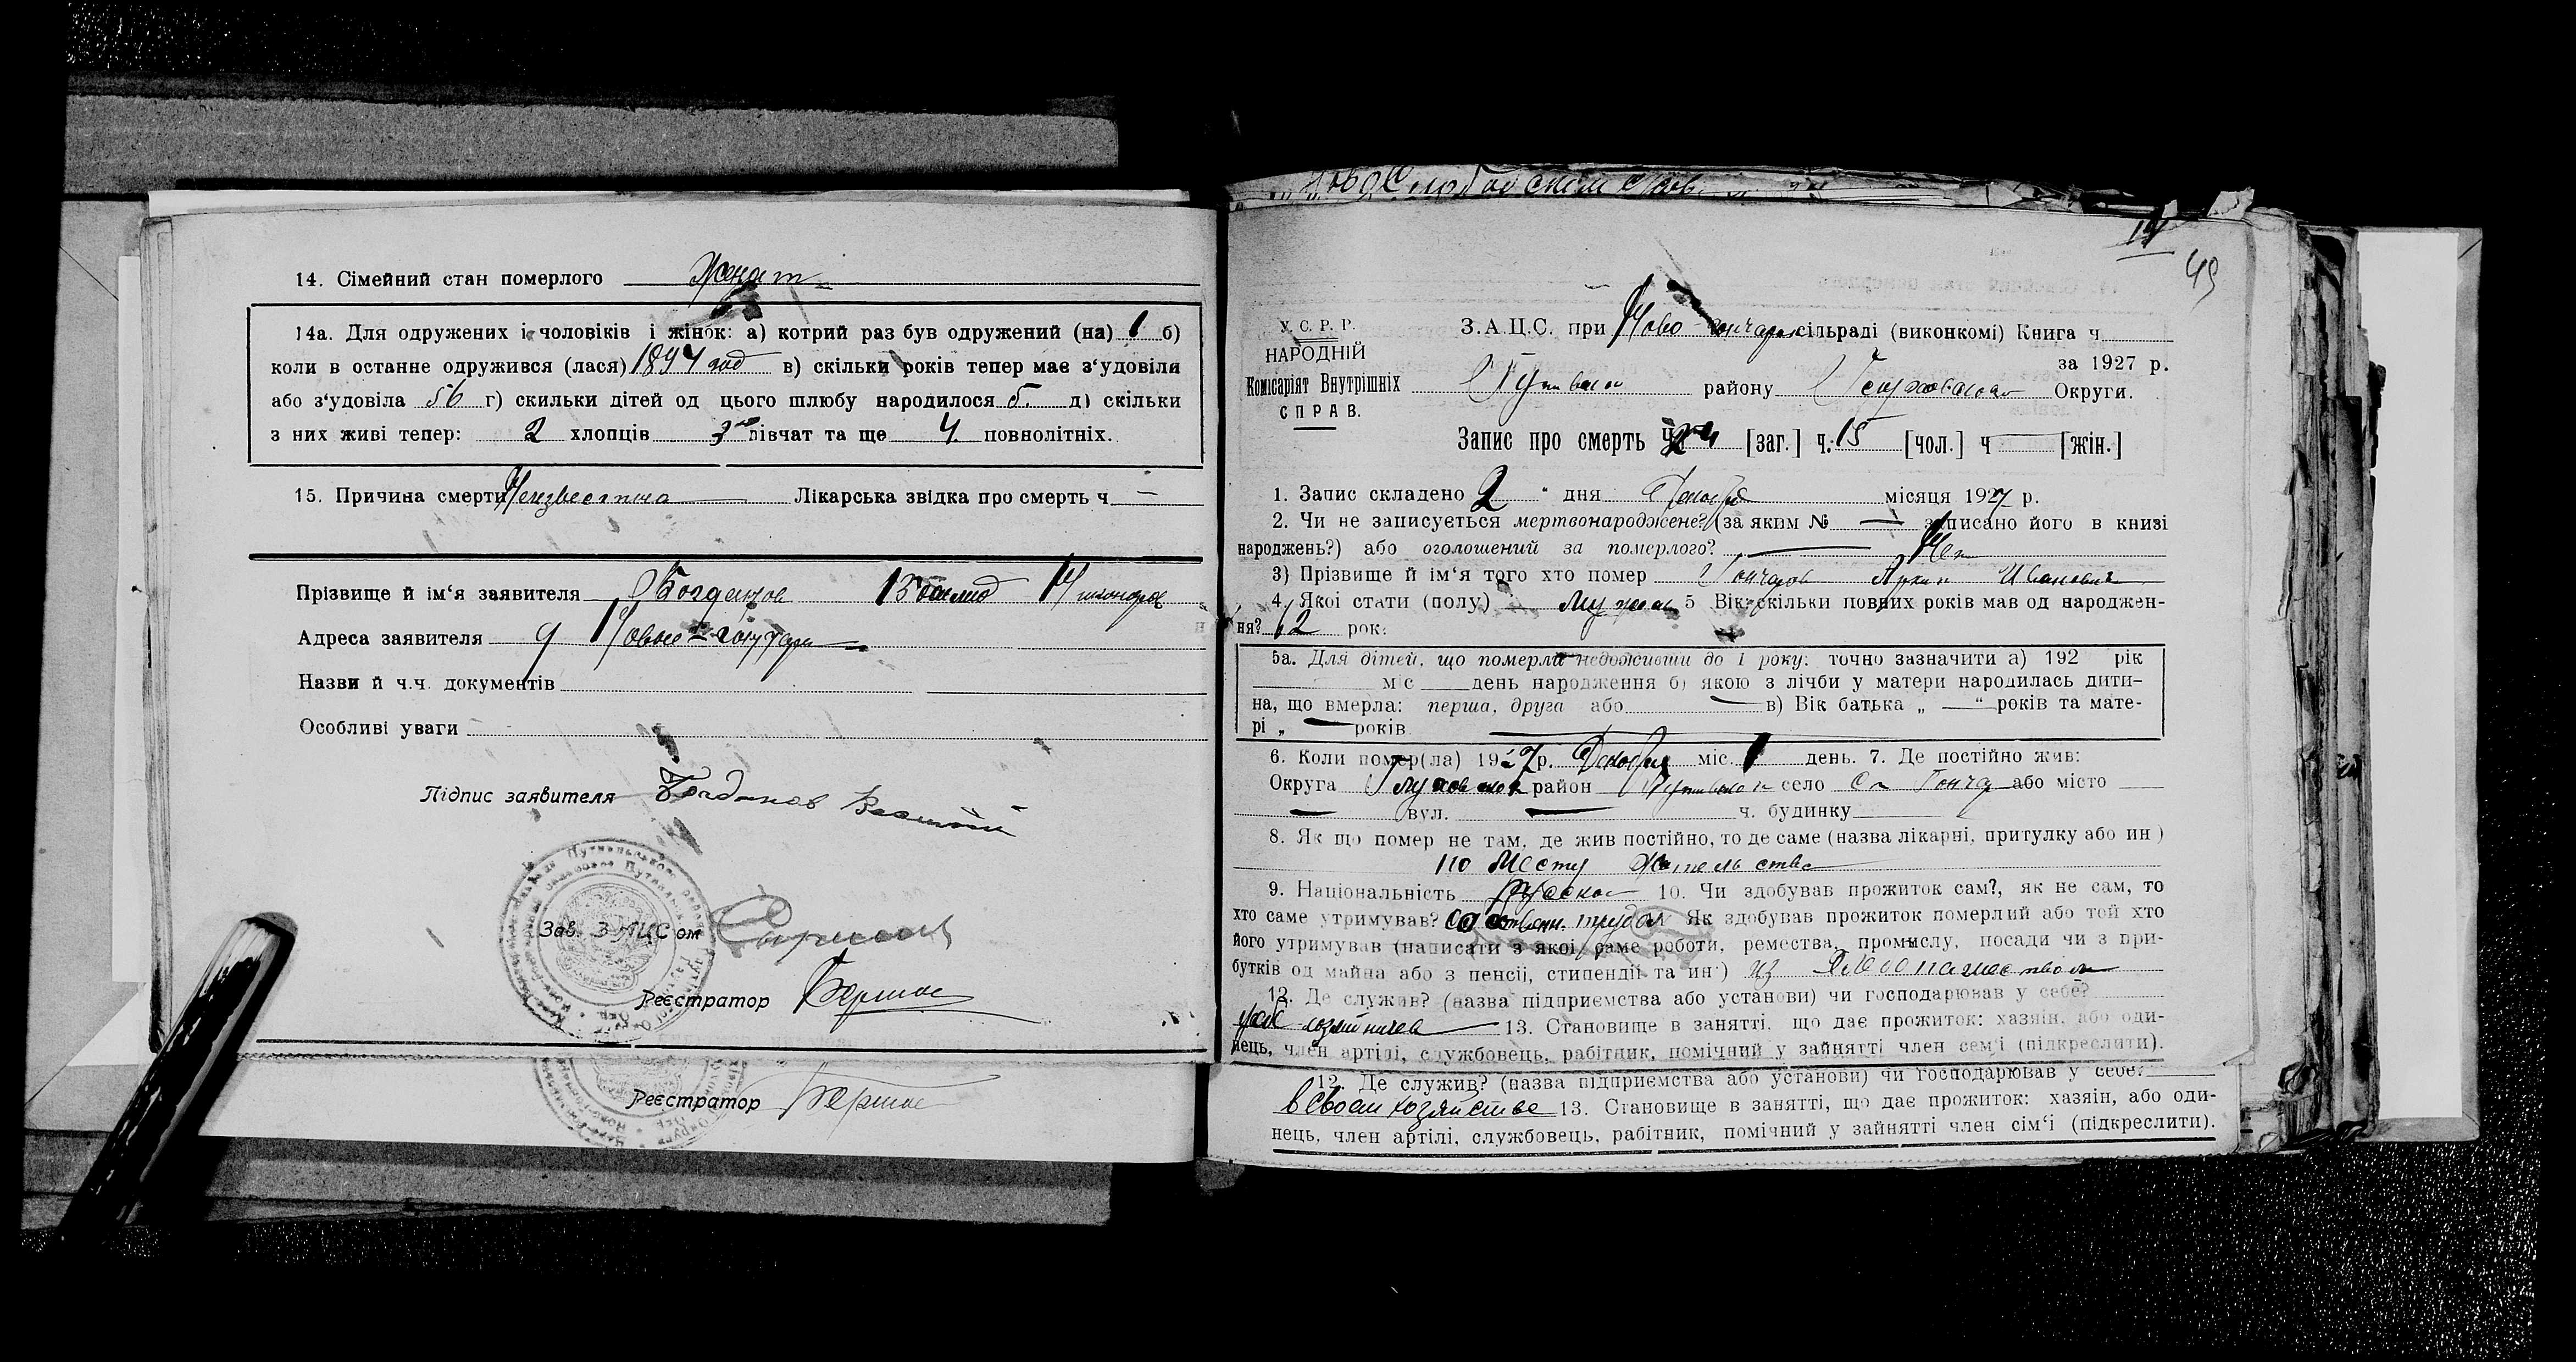 14. Сімейний стан померлого Женат
14а. Для одружених і чоловіків і жінок: а) котрий раз був одружений (на) 1 б)
коли в останне одружився (лася) год в) скільки років тепер має з‘удовіли
або з‘удовіла 56 г) скильки дітей од цього шлюбу народилося 5. д) скільки
з них живі тепер: 2 хлопців 3 дівчат та ще 4 повнолітніх.
15. Причина смерти Неизвестна Лікарська звідка про смерть ч —
Прізвище й ім‘я заявителя Богданов
Адреса заявителя Новые-Гончари
Назви й ч.ч. документів
Особливі уваги
Підпис заявителя Богданов
Зав. ЗАЦС ом
Реєстратор
Реєстратор
14
49
У. С. Р. Р.
НАРОДНІЙ
Комісаріят Внутрішніх
СПРАВ.
З.А.Ц.С. при Ново-Гончарск сільраді (виконкомі) Книга ч
за 1927 р.
району Округи.
Запис про смерть ч. [заг.] ч. 15 [чол.] ч — [жін.]
1. Запис складено 2 " дня Декабря місяця 1927 р.
2. Чи не записується мертвонароджене? (за яким № — записано його в книзі
народжень?) або оголошений за померлого? — Нет
3) Прізвище й ім‘я того хто помер Гончаров Иванович
4. Якої стати (полу) 5 Вік: скільки повних років мав од народжен-
ня? 62 рок.
5а. Для дітей, що померли недоживши до 1 року: точно зазначити а) 192 рік
міс день народження б) якою з лічби у матери народилась дити-
на, що вмерла: перша, друга або — в) Вік батька „ — “ років та мате-
рі „ — років
6. Коли помер(ла) 1927 р. Декабря міс. 1 день. 7. Де постійно жив:
Округа Глуховская район Путивльск село або місто —
— вул. — ч. будинку
8. Як що помер не там, де жив постійно, то де саме (назва лікарні, притулку або ин)
по месту жительства
9. Національність русская 10. Чи здобував прожиток сам?, як не сам, то
хто саме утримував? собствен. трудом Як здобував прожиток померлий або той хто
його утримував (написати з якої саме роботи, ремества, промислу, посади чи з при-
бутків од майна або з пенсії, стипендії та ин.) из
12. Де служив? (назва підприємства або установи) чи господарював у себе?
13. Становище в занятті, що дає прожиток: хазяїн, або оди-
нець, член артілі, службовець, рабітник, помічний у зайнятті член сем‘ї (підкреслити).
12. Де служив? (назва підприємства або установи) чи господарював у себе?
в своем хозяйстве 13. Становище в занятті, що дає прожиток: хазяїн, або оди-
нець, член артілі, службовець, рабітник, помічний у зайнятті член сім‘ї (підкреслити).